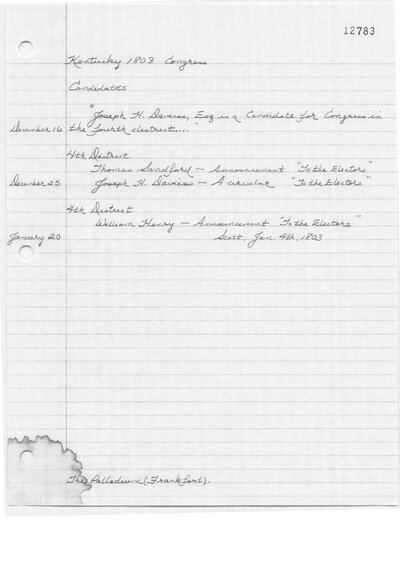 12783
Kentucky 1803 Congress
Candidates
"Joseph H. Daveiss, Esq is a Candidate for Congress in
December 16 the fourth district...."
4th District
Thomas Sandford - Announcement "To the Electors"
December 25 Joseph H. Daveiss - A circular "To the Electors"
4th District
William Henry - Announcement "To the Electors"
January 20 Scott, Jan. 4th, 1803
The Palladium (Frankfort).